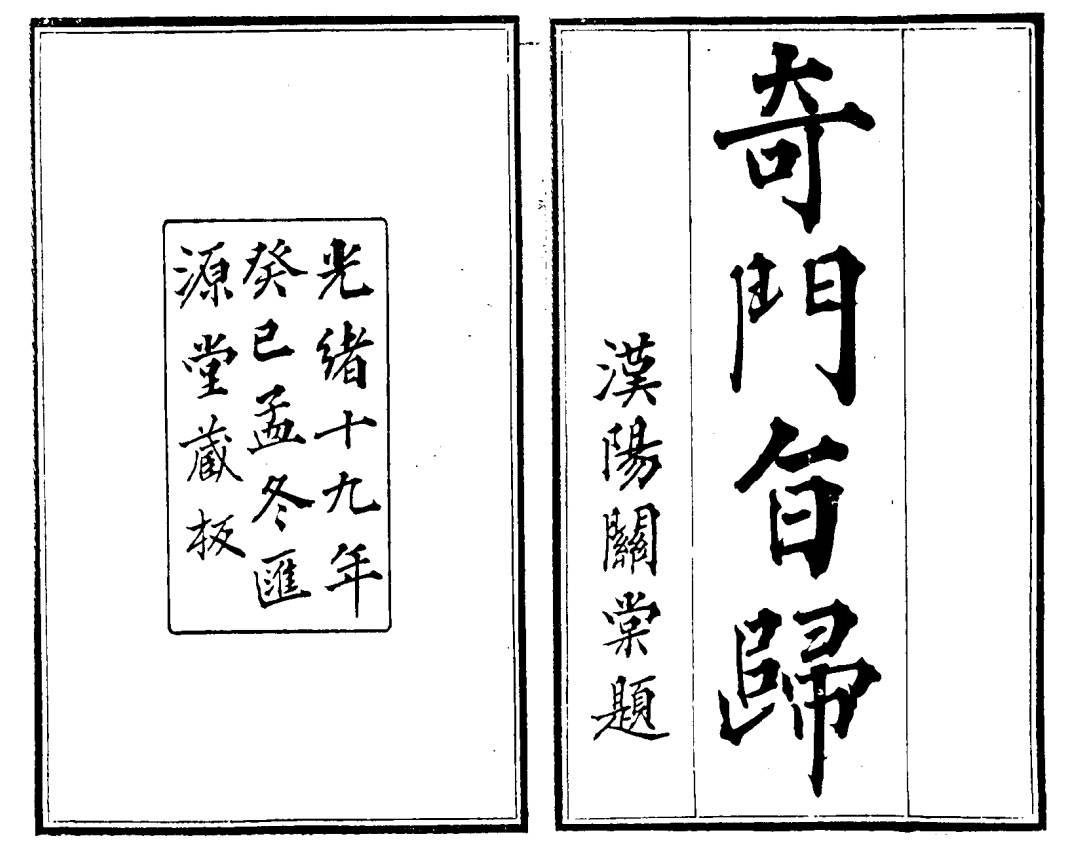 奇門旨歸
漢陽關棠題
光緒十九年
癸巳孟冬匯
源堂藏板